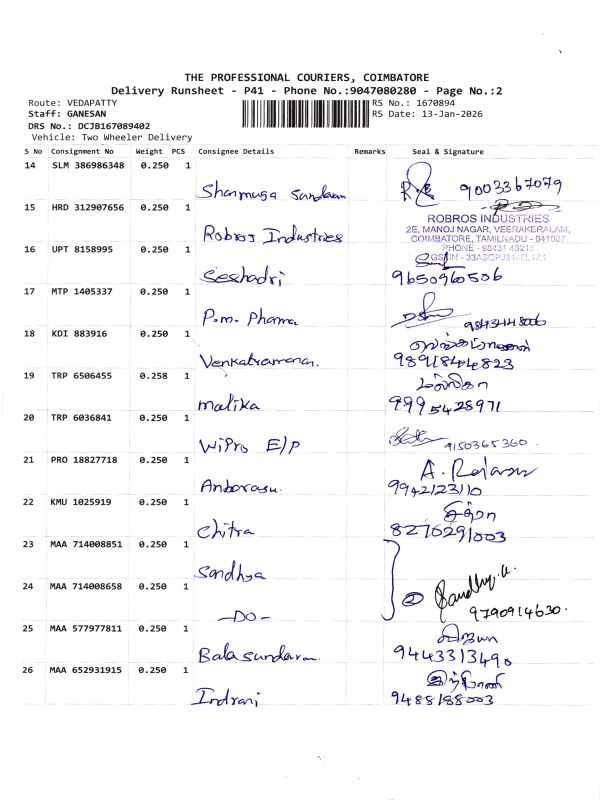 THE PROFESSIONAL COURIERS, COIMBATORE
Delivery Runsheet - P41 - Phone No.:9047080280 - Page No.:2
Route: VEDAPATTY
Staff: GANESAN
DRS No.: DCJB167089402
Vehicle: Two Wheeler Delivery
RS No.: 1670894
RS Date: 13-Jan-2026
S No Consignment No Weight PCS Consignee Details Remarks Seal & Signature
14 SLM 386986348 0.250 1
Shanmuga Sundaram 9003367079
15 HRD 312907656 0.250 1
Robros Industries
ROBROS INDUSTRIES
2E, MANOJ NAGAR, VEERAKERALAM,
COIMBATORE, TAMILNADU - 641007
PHONE - 98431 43215
16 UPT 8158995 0.250 1
Seshadri 9650960506
17 MTP 1405337 0.250 1
P.M. Pharma
18 KDI 883916 0.250 1
Venkatramanan. 9891844823
19 TRP 6506455 0.258 1
மல்லிகா
Malika 9995428971
20 TRP 6036841 0.250 1
Wipro E/P 9150365360.
21 PRO 18827718 0.250 1
A. Rajasu
Anborasu. 9942123110
22 KMU 1025919 0.250 1
சித்ரா
Chitra 8270291003
23 MAA 714008851 0.250 1
Sandhya
24 MAA 714008658 0.250 1
② Sandhya.
-DO- 9790914630.
25 MAA 577977811 0.250 1
விஜயா
Balasundaram 9443313490
26 MAA 652931915 0.250 1
இந்திராணி
Indrani 9488188003